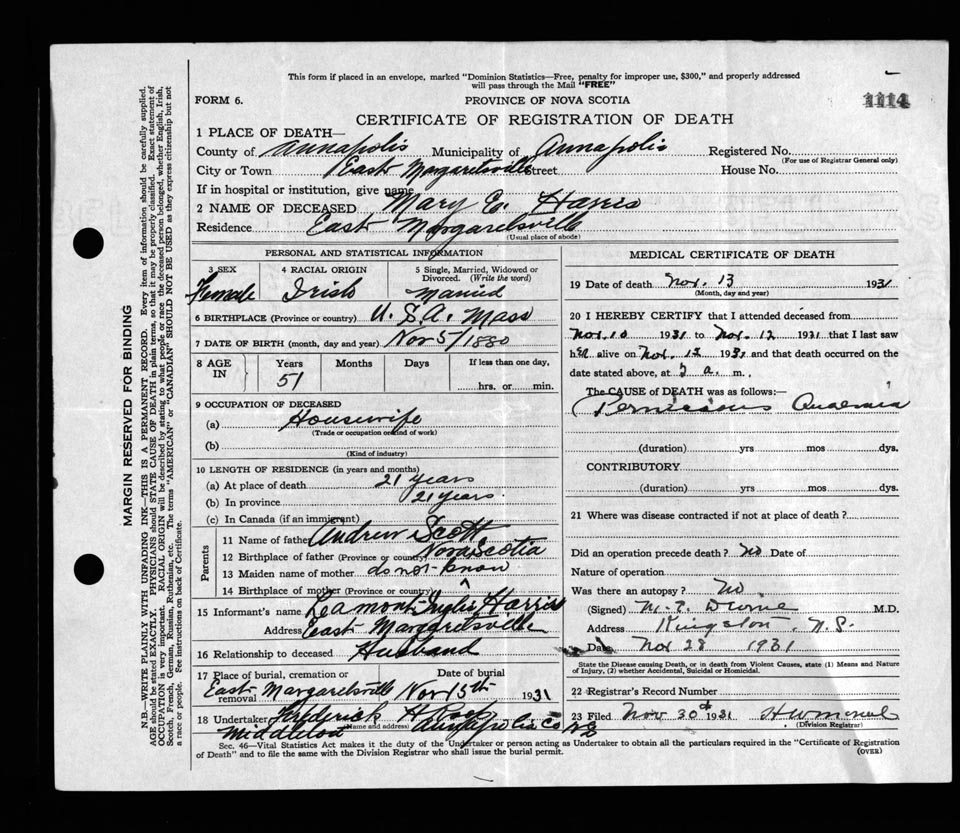 This form if placed in an envelope, marked "Dominion Statistics—Free, penalty for improper use, $300," and properly addressed
will pass through the Mail "FREE"
FORM 6.
PROVINCE OF NOVA SCOTIA
1114
CERTIFICATE OF REGISTRATION OF DEATH
1 PLACE OF DEATH—
County of Annapolis Municipality of Annapolis Registered No.
(For use of Registrar General only)
City or Town East Margaretsville Street House No.
If in hospital or institution, give name
2 NAME OF DECEASED Mary E. Harris
Residence East Margaretsville
(Usual place of abode)
PERSONAL AND STATISTICAL INFORMATION
3 SEX 4 RACIAL ORIGIN 5 Single, Married, Widowed or
Divorced. (Write the word)
Female Irish Married
6 BIRTHPLACE (Province or country) U.S.A. Mass
7 DATE OF BIRTH (month, day and year) Nov 5/1880
8 AGE IN Years Months Days If less than one day,
51 hrs. or min.
9 OCCUPATION OF DECEASED
(a) Housewife
(Trade or occupation or kind of work)
(b)
(Kind of industry)
10 LENGTH OF RESIDENCE (in years and months)
(a) At place of death 21 years
(b) In province 21 years
(c) In Canada (if an immigrant)
Parents
11 Name of father Andrew Scott
12 Birthplace of father (Province or country) Nova Scotia
13 Maiden name of mother do not know
14 Birthplace of mother (Province or country)
15 Informant's name Lamont Harris
Address East Margaretsville
16 Relationship to deceased Husband
17 Place of burial, cremation or removal Date of burial
East Margaretsville Nov 15th 1931
18 Undertaker Frederick H
(Name and address)
Middleton Annapolis Co NS
MEDICAL CERTIFICATE OF DEATH
19 Date of death Nov. 13 1931
(Month, day and year)
20 I HEREBY CERTIFY that I attended deceased from
Nov. 10 1931 to Nov. 12 1931 that I last saw
her alive on Nov. 12 1931 and that death occurred on the
date stated above, at 3 a. m.
The CAUSE OF DEATH was as follows:
Pernicious Anaemia
(duration) yrs mos dys.
CONTRIBUTORY
(duration) yrs. mos dys.
21 Where was disease contracted if not at place of death?
Did an operation precede death? No Date of
Nature of operation
Was there an autopsy? No.
(Signed) M.D.
Address Kingston, N.S.
Date Nov 28 1931
State the Disease causing Death, or in death from Violent Causes, state (1) Means and Nature
of Injury, (2) whether Accidental, Suicidal or Homicidal.
22 Registrar's Record Number
23 Filed Nov 30th 1931
(Division Registrar)
Sec. 46—Vital Statistics Act makes it the duty of the Undertaker or person acting as Undertaker to obtain all the particulars required in the "Certificate of Registration
of Death" and to file the same with the Division Registrar who shall issue the burial permit. (OVER)
MARGIN RESERVED FOR BINDING
N.B.—WRITE PLAINLY WITH UNFADING INK—THIS IS A PERMANENT RECORD. Every item of information should be carefully supplied.
AGE should be stated EXACTLY. PHYSICIANS should STATE CAUSE OF DEATH in plain terms, so that it may be properly classified. Exact statement of
OCCUPATION is very important. RACIAL ORIGIN will be described by stating to what people or race the deceased person belonged, whether English, Irish,
Scotch, French, German, Russian, Ruthenian, etc. The terms "AMERICAN" or "CANADIAN" SHOULD NOT BE USED as they express citizenship but not
a race or people. Fee instructions on back of Certificate.